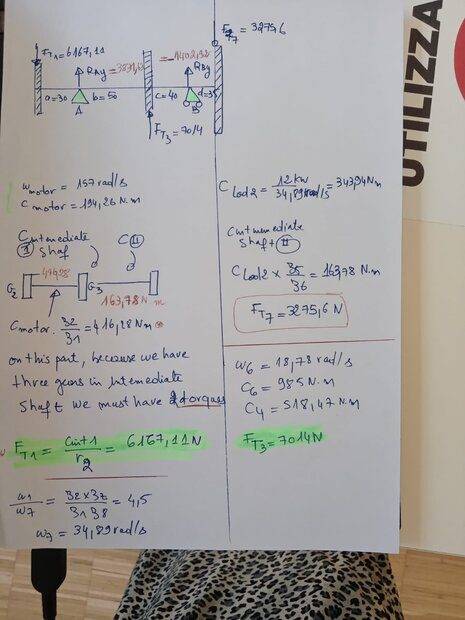 FT7 = 3275,6
FT1 = 6167,11
RAy = 3831,6
= -1402,32
RBy
a=30
b=50
c=40
d=35
A
B
FT3 = 7014
UTILIZZA
ωmotor = 157 rad/s
Cmotor = 194,26 N.m
Cintmediate
I shaf
C II
G2
G3
163,78 N m
Cmotor. Z2/Z1 = 416,28 Nm
on this part, because we have
three gears in intmediate
shaft we must have 2 torques
FT1 = Cint1/r2 = 6167,11N
ω1/ω7 = Z2 × Z7 / = 4,5
ω7 = 34,89 rad/s
CLoad2 = 12 kW / 34,89 rad/s = 343,94 N.m
Cintmmediate
shaft II
CLoad2 × Z5/Z6 = 163,78 N.m
FT7 = 3275,6 N
ω6 = 18,78 rad/s
C6 = 985 N.m
C4 = 518,47 N.m
FT3 = 7014N